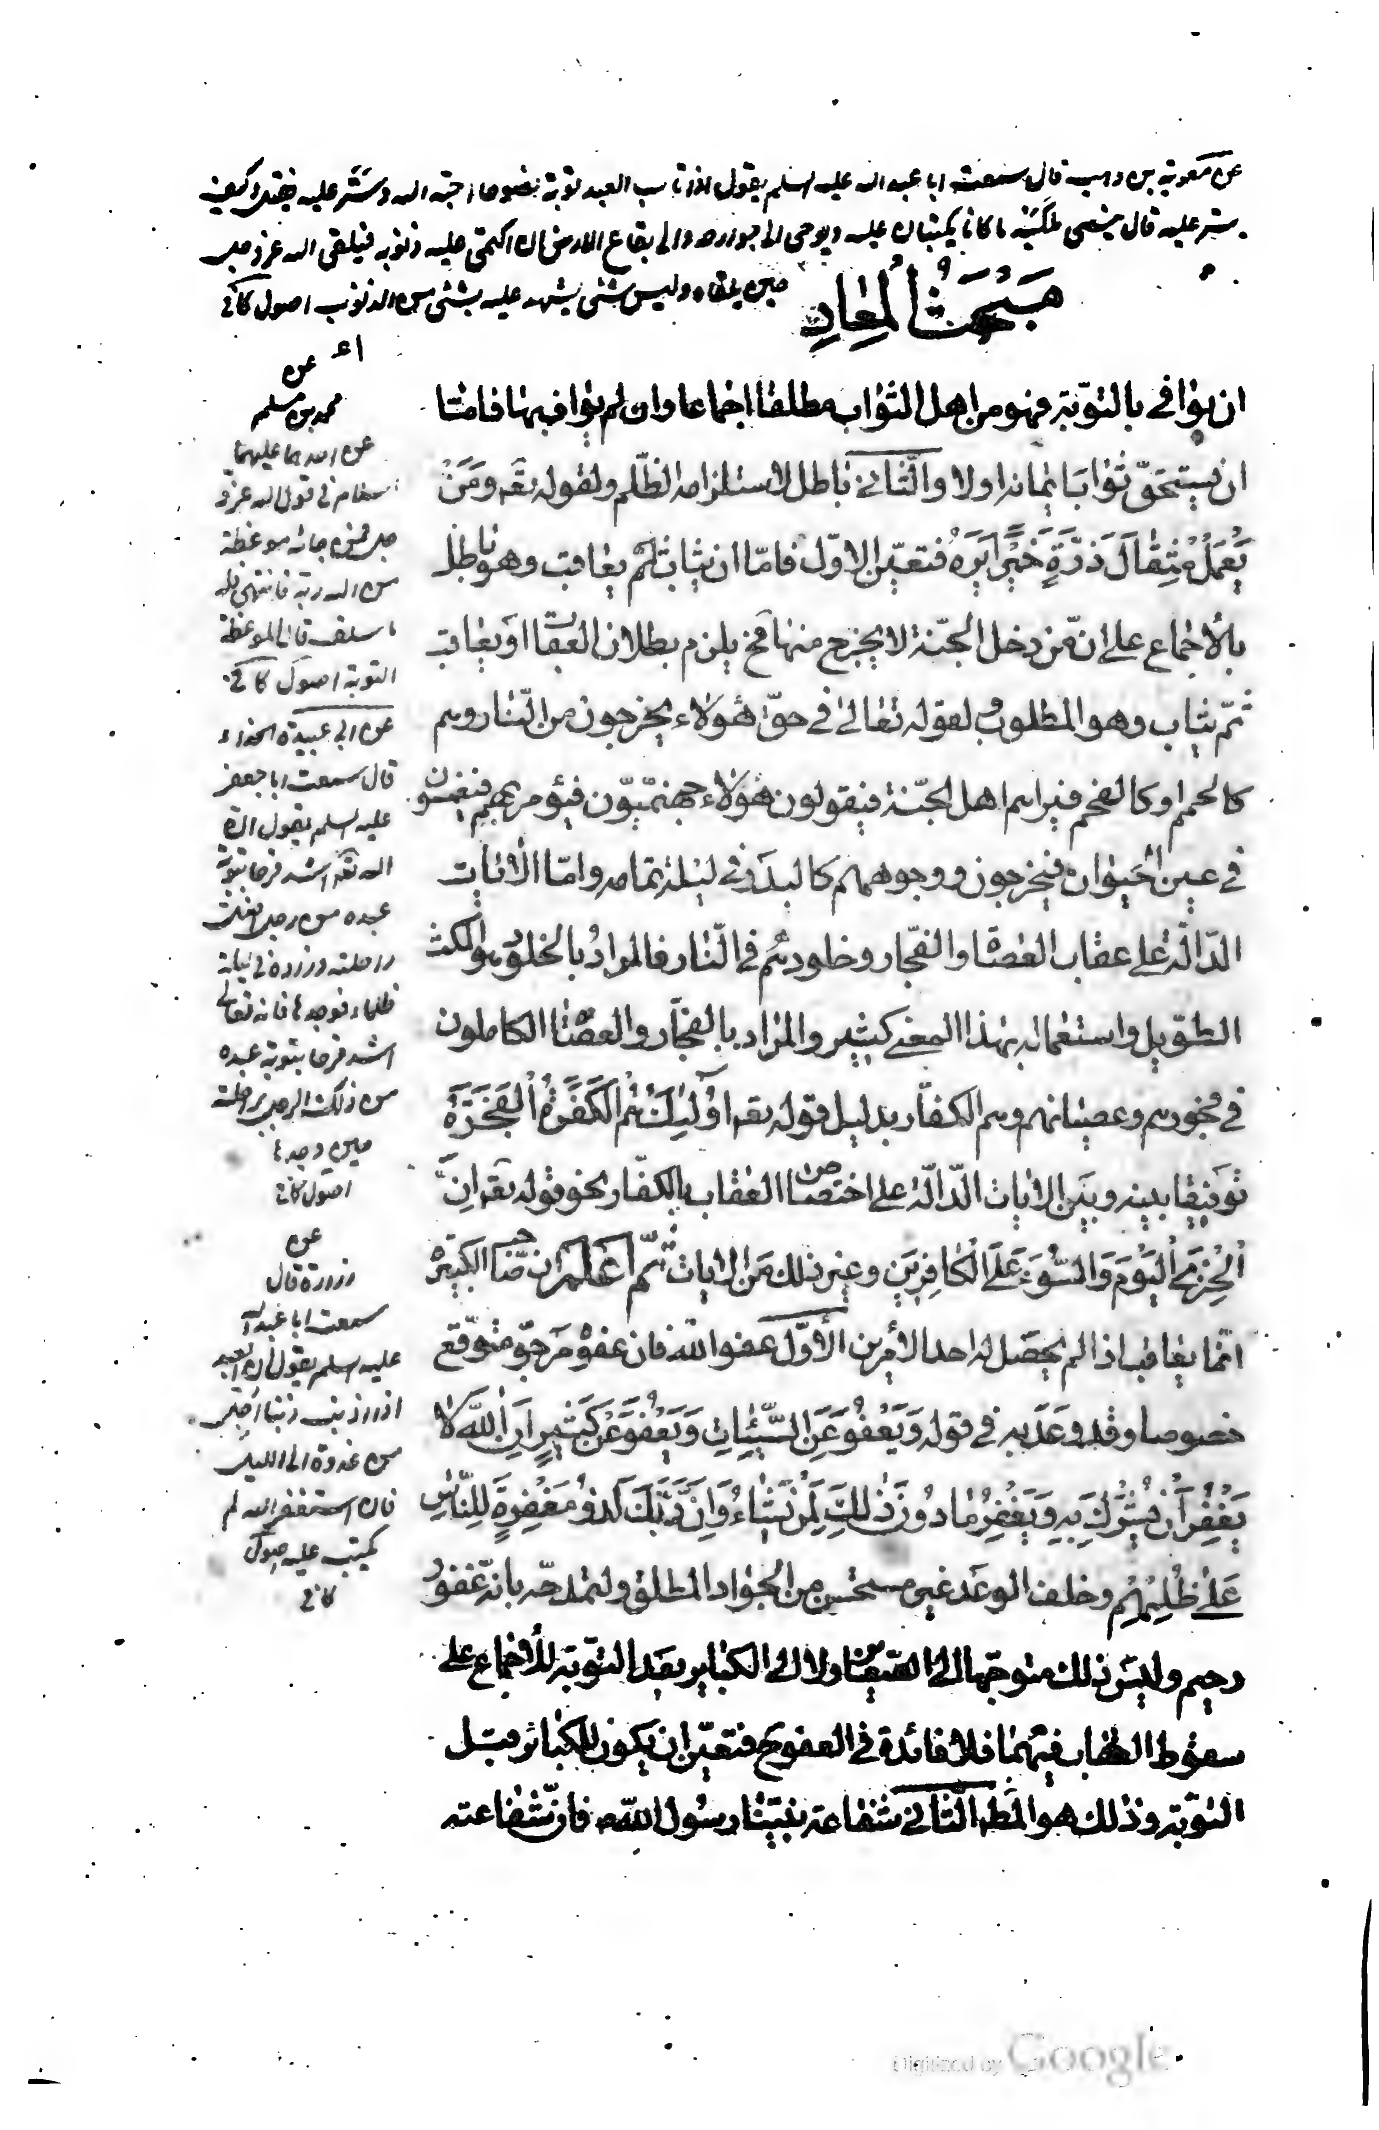 عن معوية بن وهب قال سمعت ابا عبد الله عليه السلم يقول اذا تاب العبد توبة نصوحا احبه الله فستر عليه فقلت وكيف
يستر عليه قال ينسى ملكيه ما كانا يكتبان عليه ويوحى الى جوارحه والى بقاع الارض ان اكتمى عليه ذنوبه فيلقى الله عز وجل
حين يلقاه وليس شئ يشهد عليه بشئ من الذنوب اصول كافى
مبحث المعاد
ان يوافى بالتوبة فهو من اهل الثواب مطلقا اجماعا وان لم يواف بها فامّا
ان يستحق ثوابا بايمانه اولا والثانى باطل لاستلزامه الظلم ولقوله تعه ومن
يعمل مثقال ذرة خيرا يره فتعيّن الاول فامّا ان يثاب ثم يعاقب وهو باطل
بالأجماع على ان من دخل الجنة لا يخرج منها فح يلزم بطلان العقاب او يعاقب
ثم يثاب وهو المطلوب لقوله تعالى فى حق هؤلاء يخرجون من النار وهم
كالحمم او كالفحم فيراهم اهل الجنة فيقولون هؤلاء جهنميّون فيؤمر بهم فيغمسون
فى عين الحيوان فيخرجون ووجوههم كالبدر فى ليلة تمامه وامّا الايات
الدالة على عقاب العصاة والفجار وخلودهم فى النار فالمراد بالخلود هو المكث
الطويل واستعماله بهذا المعنى كثير والمراد بالفجار والعصاة الكاملون
فى فجورهم وعصيانهم وهم الكفار بدليل قوله تعه اولئك هم الكفرة الفجرة
توفيقا بينه وبين الايات الدالة على اختصاص العقاب بالكفار نحو قوله تعه ان
الخزى اليوم والسوء على الكافرين وغير ذلك من الايات ثم اعلم ان صاحب الكبيرة
انما يعاقب اذا لم يحصل له احد الامرين الاول عفو الله فان عفوه مرجو متوقع
خصوصا وقد وعد به فى قوله ويعفو عن السيئات ويعفو عن كثير ان الله لا
يغفر ان يشرك به ويغفر ما دون ذلك لمن يشاء وان ربك لذو مغفرة للناس
على ظلمهم وخلف الوعد غير مستحسن من الجواد المطلق ولتمدحه بانه غفور
رحيم وليس ذلك متوجها الى الصغاير ولا الى الكباير بعد التوبة للاجماع على
سقوط العقاب فيهما فلا فائدة فى العفو ح فتعيّن ان يكون للكبائر قبل
التوبة وذلك هو المط الثانى شفاعة نبيّنا رسول الله فان شفاعته
عن
محمد بن مسلم
عن احدهما عليهما
السلام فى قول الله عز و
جل فمن جائه موعظة
من الله ربه فانتهى فله
ما سلف قال الموعظة
التوبة اصول كافى
عن ابى عبيدة الحذاء
قال سمعت ابا جعفر
عليه السلم يقول ان
الله تعه اشد فرحا بتوبة
عبده من رجل اضل
راحلته وزاده فى ليلة
ظلماء فوجدها فالله تعالى
اشد فرحا بتوبة عبده
من ذلك الرجل براحلته
حين وجدها
اصول كافى
عن
زرارة قال
سمعت ابا عبد الله
عليه السلم يقول ان العبد
اذا اذنب ذنبا اجل
من غدوة الى الليل
فان استغفر الله لم
يكتب عليه اصول
كافى
Digitized by Google